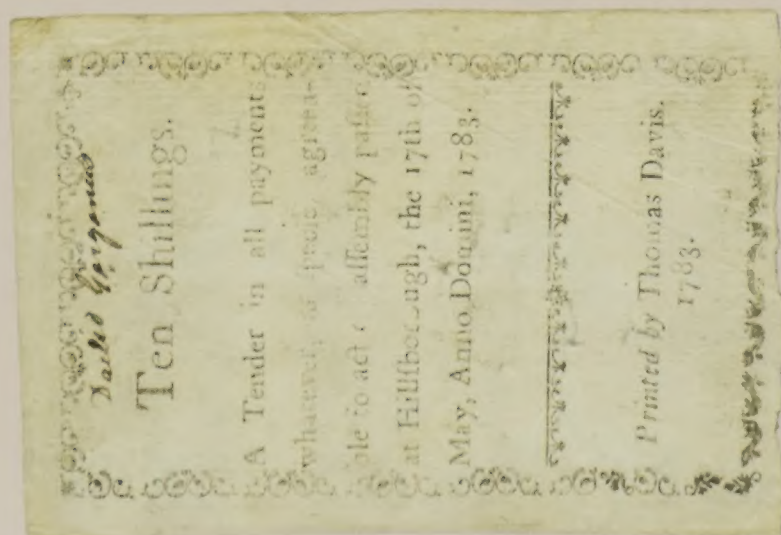 Ten Shillings.
A Tender in all payments
whatever, as specie, agreea-
ble to act assembly passed
at Hillsborough, the 17th of
May, Anno Domini, 1783.
Printed by Thomas Davis.
1783.